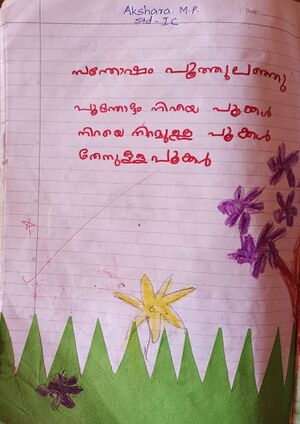 Akshara. M.P.
Std - I C
Date :
സന്തോഷം പൂത്തുലഞ്ഞു
പൂന്തോട്ടം നിറയെ പൂക്കൾ
നിറയെ നിറമുള്ള പൂക്കൾ
തേനുള്ള പൂക്കൾ